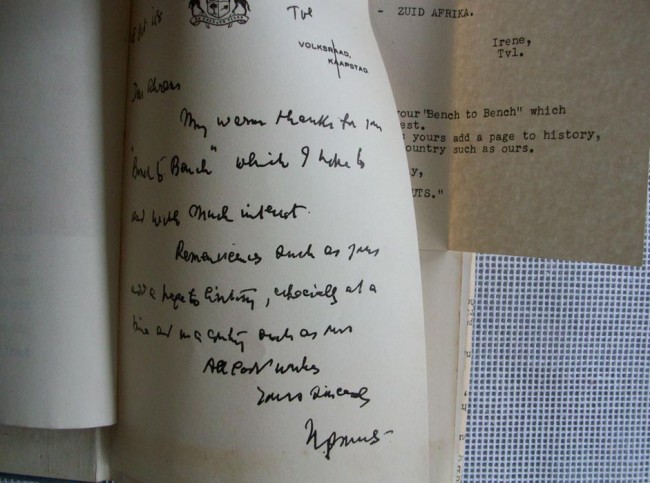 Tvl
VOLKSRAAD,
KAAPSTAD.
My warm thanks for your
"Bench to Bench" which I hope to
read with much interest.
Reminiscences such as yours
add a page to history, especially at a
time and in a country such as ours
All good wishes
Yours sincerely
- ZUID AFRIKA.
Irene,
Tvl.
your "Bench to Bench" which
est.
yours add a page to history,
ountry such as ours.
y,
UTS."